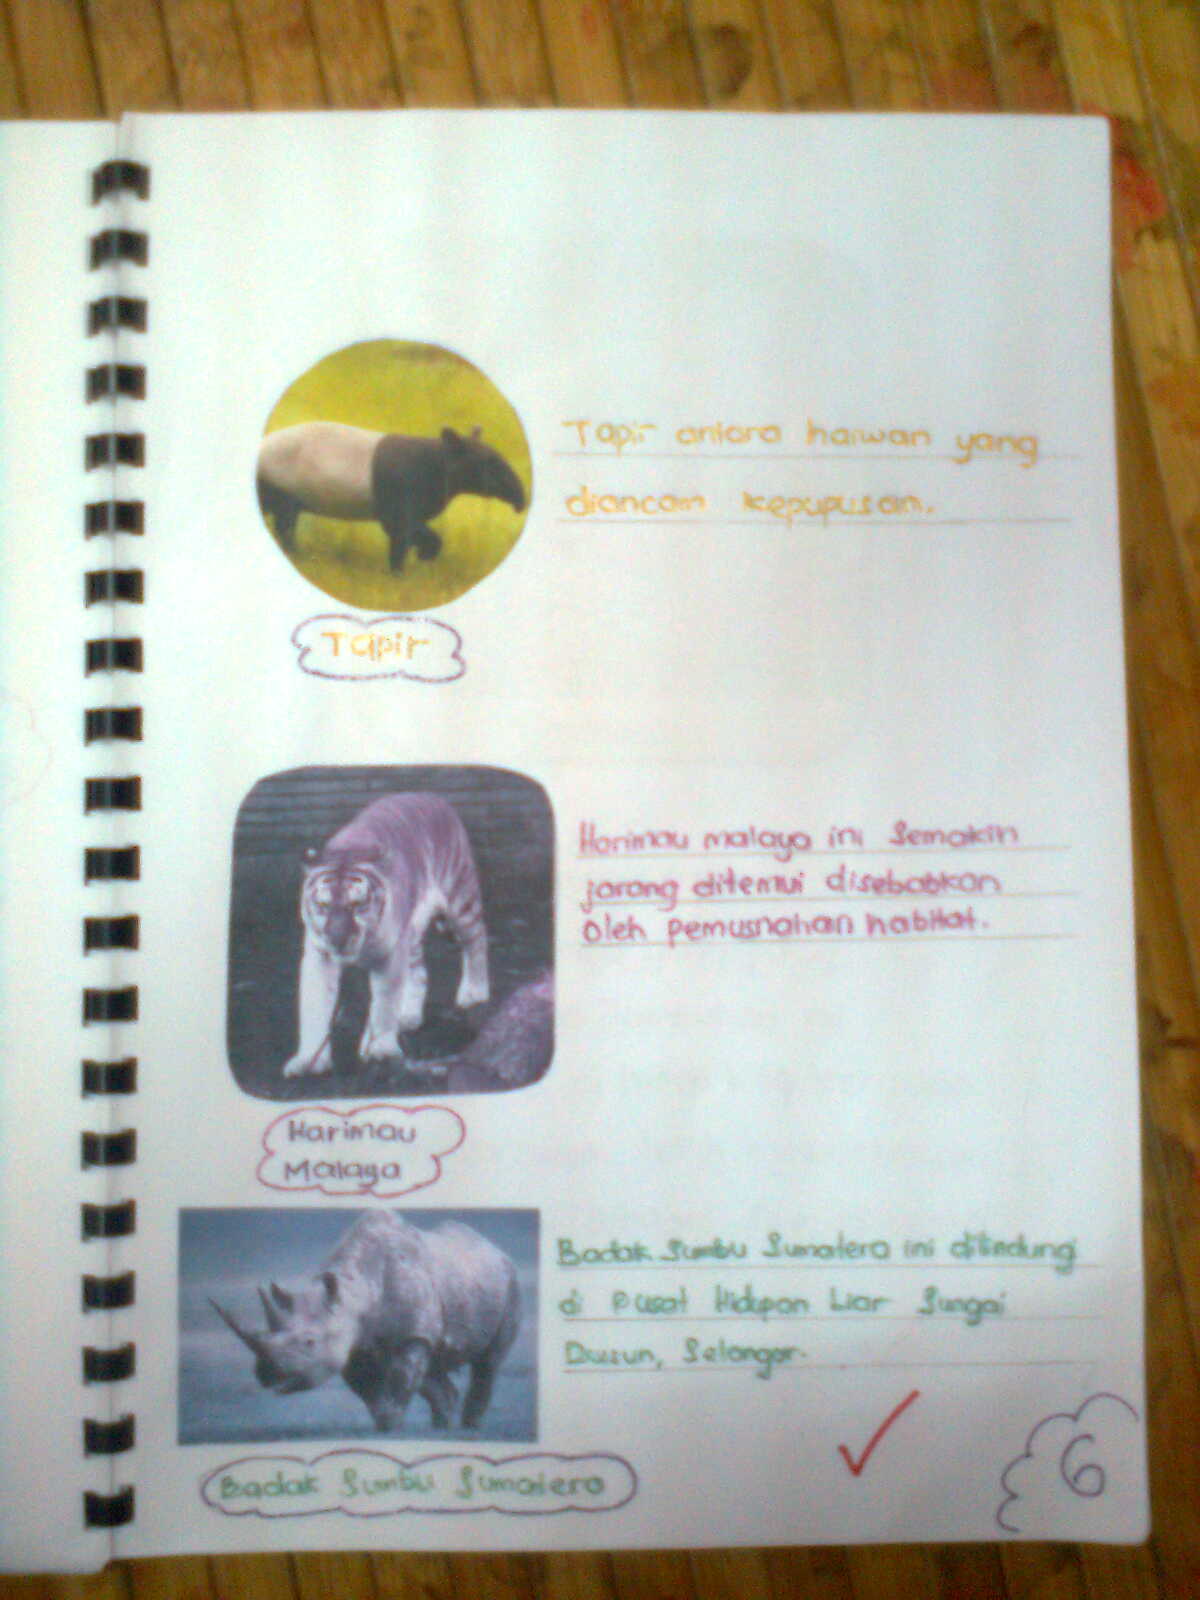 Tapir antara haiwan yang
diancam kepupusan.
Tapir
Harimau malaya ini semakin
jarang ditemui disebabkan
oleh pemusnahan habitat.
Harimau
Malaya
Badak Sumbu Sumatera ini dilindungi
di Pusat Hidupan Liar Sungai
Dusun, Selangor.
Badak Sumbu Sumatera
6